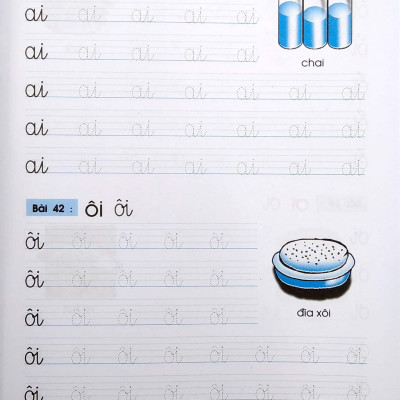 ai ai ai ai ai
ai ai ai ai ai
chai
ai ai ai ai ai ai ai
ai ai ai ai ai ai ai
ai ai ai ai ai ai ai
Bài 42 : ôi ôi
ôi ôi ôi ôi ôi
ôi ôi ôi ôi ôi
ôi ôi ôi ôi ôi
đĩa xôi
ôi ôi ôi ôi ôi ôi ôi
ôi ôi ôi ôi ôi ôi ôi